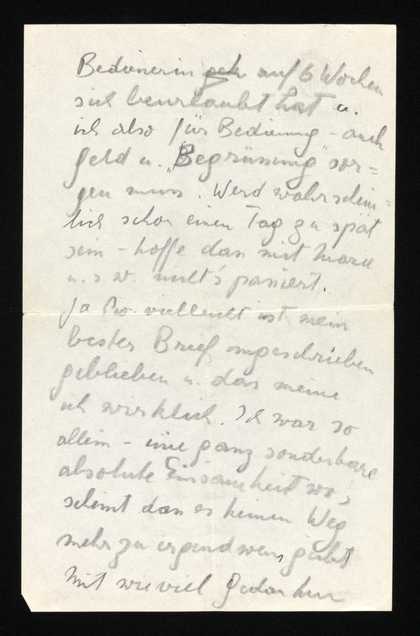 Bedienerin geh auf 6 Wochen
sich beurlaubt hat u.
ich also für Bedienung - auch
Geld u. "Begrüssung" sor=
gen muss. Werd wahrschein=
lich schon einen Tag zu spät
sein - hoffe dass mit
u.s.w. nicht's passiert.
Ja vielleicht ist mein
bester Brief ungeschrieben
geblieben u. das meine
ich wirklich. Ich war so
allein - eine ganz sonderbare
absolute Einsamkeit wo's
scheint dass es keinen Weg
mehr zu irgend wem giebt
Mit wie viel Gedanken